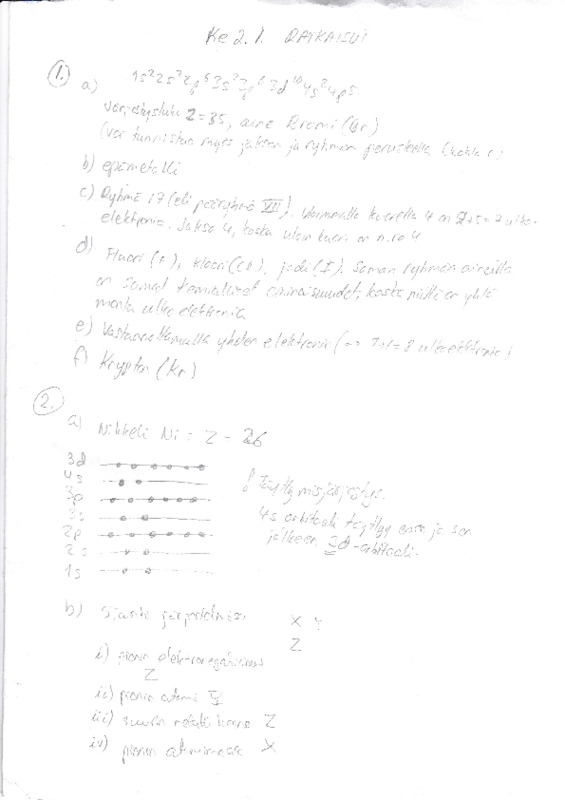 Ke 2.1. RATKAISUT
1.
a) 1s² 2s² 2p⁶ 3s² 3p⁶ 3d¹⁰ 4s² 4p⁵
Z=35, aine Bromi (Br)
(voi tunnistaa myös jakson ja ryhmän perusteella
b) epämetalli
c) Ryhmä 17 (eli pääryhmä VII). kuorella 4 on 2+5=7 ulko-
elektronia. Jakso 4, koska uloin kuori on n:o 4
d) Fluori (F), Kloori (Cl), jodi (I). Saman ryhmän aineilla
on samat kemialliset ominaisuudet, koska niillä on yhtä
monta ulkoelektronia
e) Vastaanottamalla yhden elektronin (→ 7+1=8 ulkoelektronia)
f) Krypton (Kr)
2.
a) Nikkeli Ni: Z = 26
3d
4s
3p
3s
2p
2s
1s
! Täyttymisjärjestys.
4s orbitaali täyttyy ensin ja sen
jälkeen 3d-orbitaali.
b) Sijainti
X Y
Z
i) pienin elektronegatiivisuus
Z
ii) pienin atomi Y
iii) suurin Z
iv) pienin atomimassa X